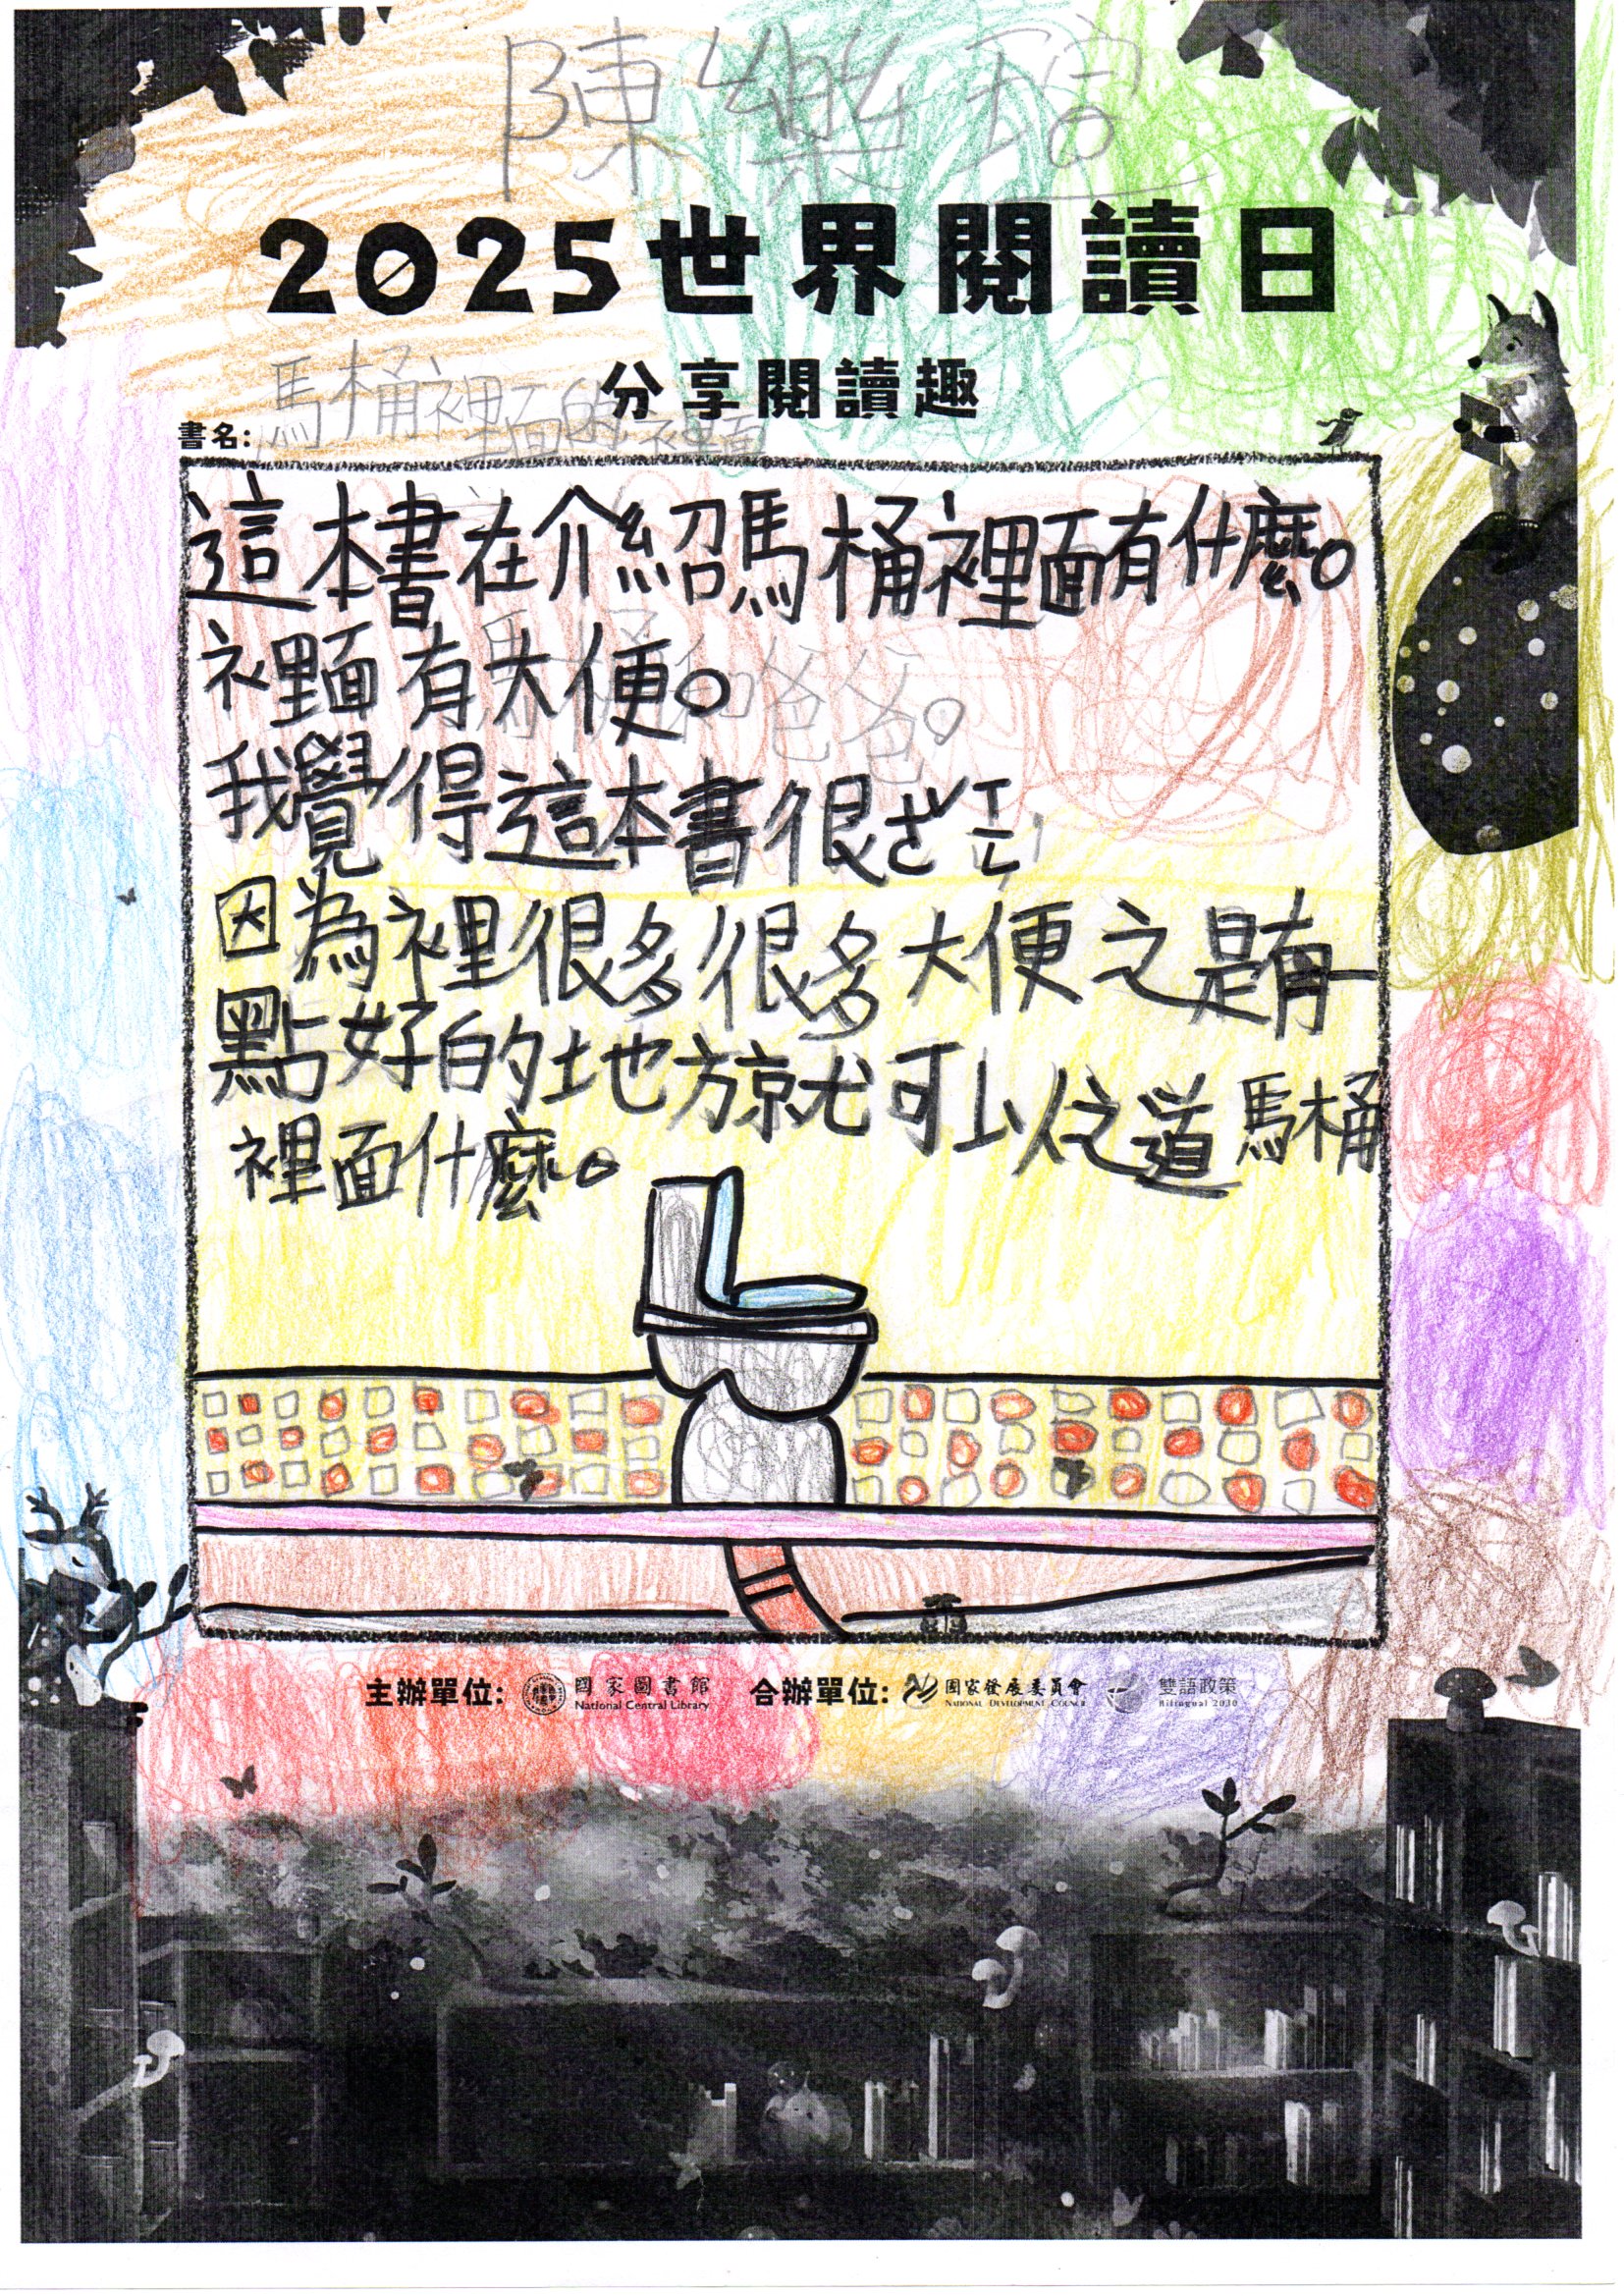 陳樂
2025世界閱讀日
分享閱讀趣
書名: 馬桶裡面的
這本書在介紹馬桶裡面有什麼。
裡面有大便。
我覺得這本書很
因為裡很多很多大便之是有一
點好的地方就可以之道馬桶
裡面什麼。
主辦單位: 國家圖書館 National Central Library 合辦單位: 國家發展委員會 NATIONAL DEVELOPMENT COUNCIL 雙語政策 Bilingual 2030